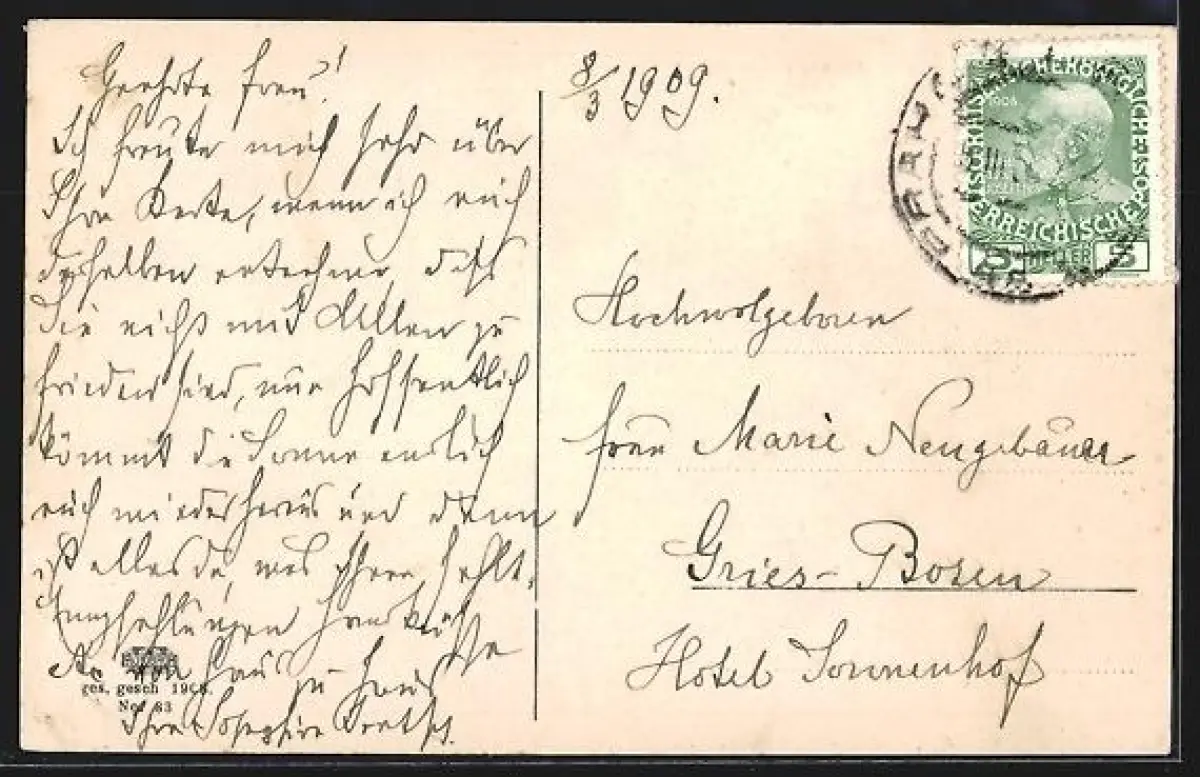 Geehrte Frau!
Ich freute mich sehr über
Ihre Karte, wenn ich auch
derselben entnehme, daß
Sie nicht mit Allem zu
frieden sind, nur hoffentlich
kommt die Sonne endlich
auch wieder heraus und dann
ist alles da, was Ihnen fehlt.
Empfehlungen
von Haus zu Haus
Ihre Josephine
ges. gesch 1908.
No. 63
8/3 1909.
KAISERLICHE KÖNIGLICHE ÖSTERREICHISCHE
1908
5 HELLER 5
Hochwolgeboren
Frau Marie Neugebauer
Gries-Bozen
Hotel Sonnenhof